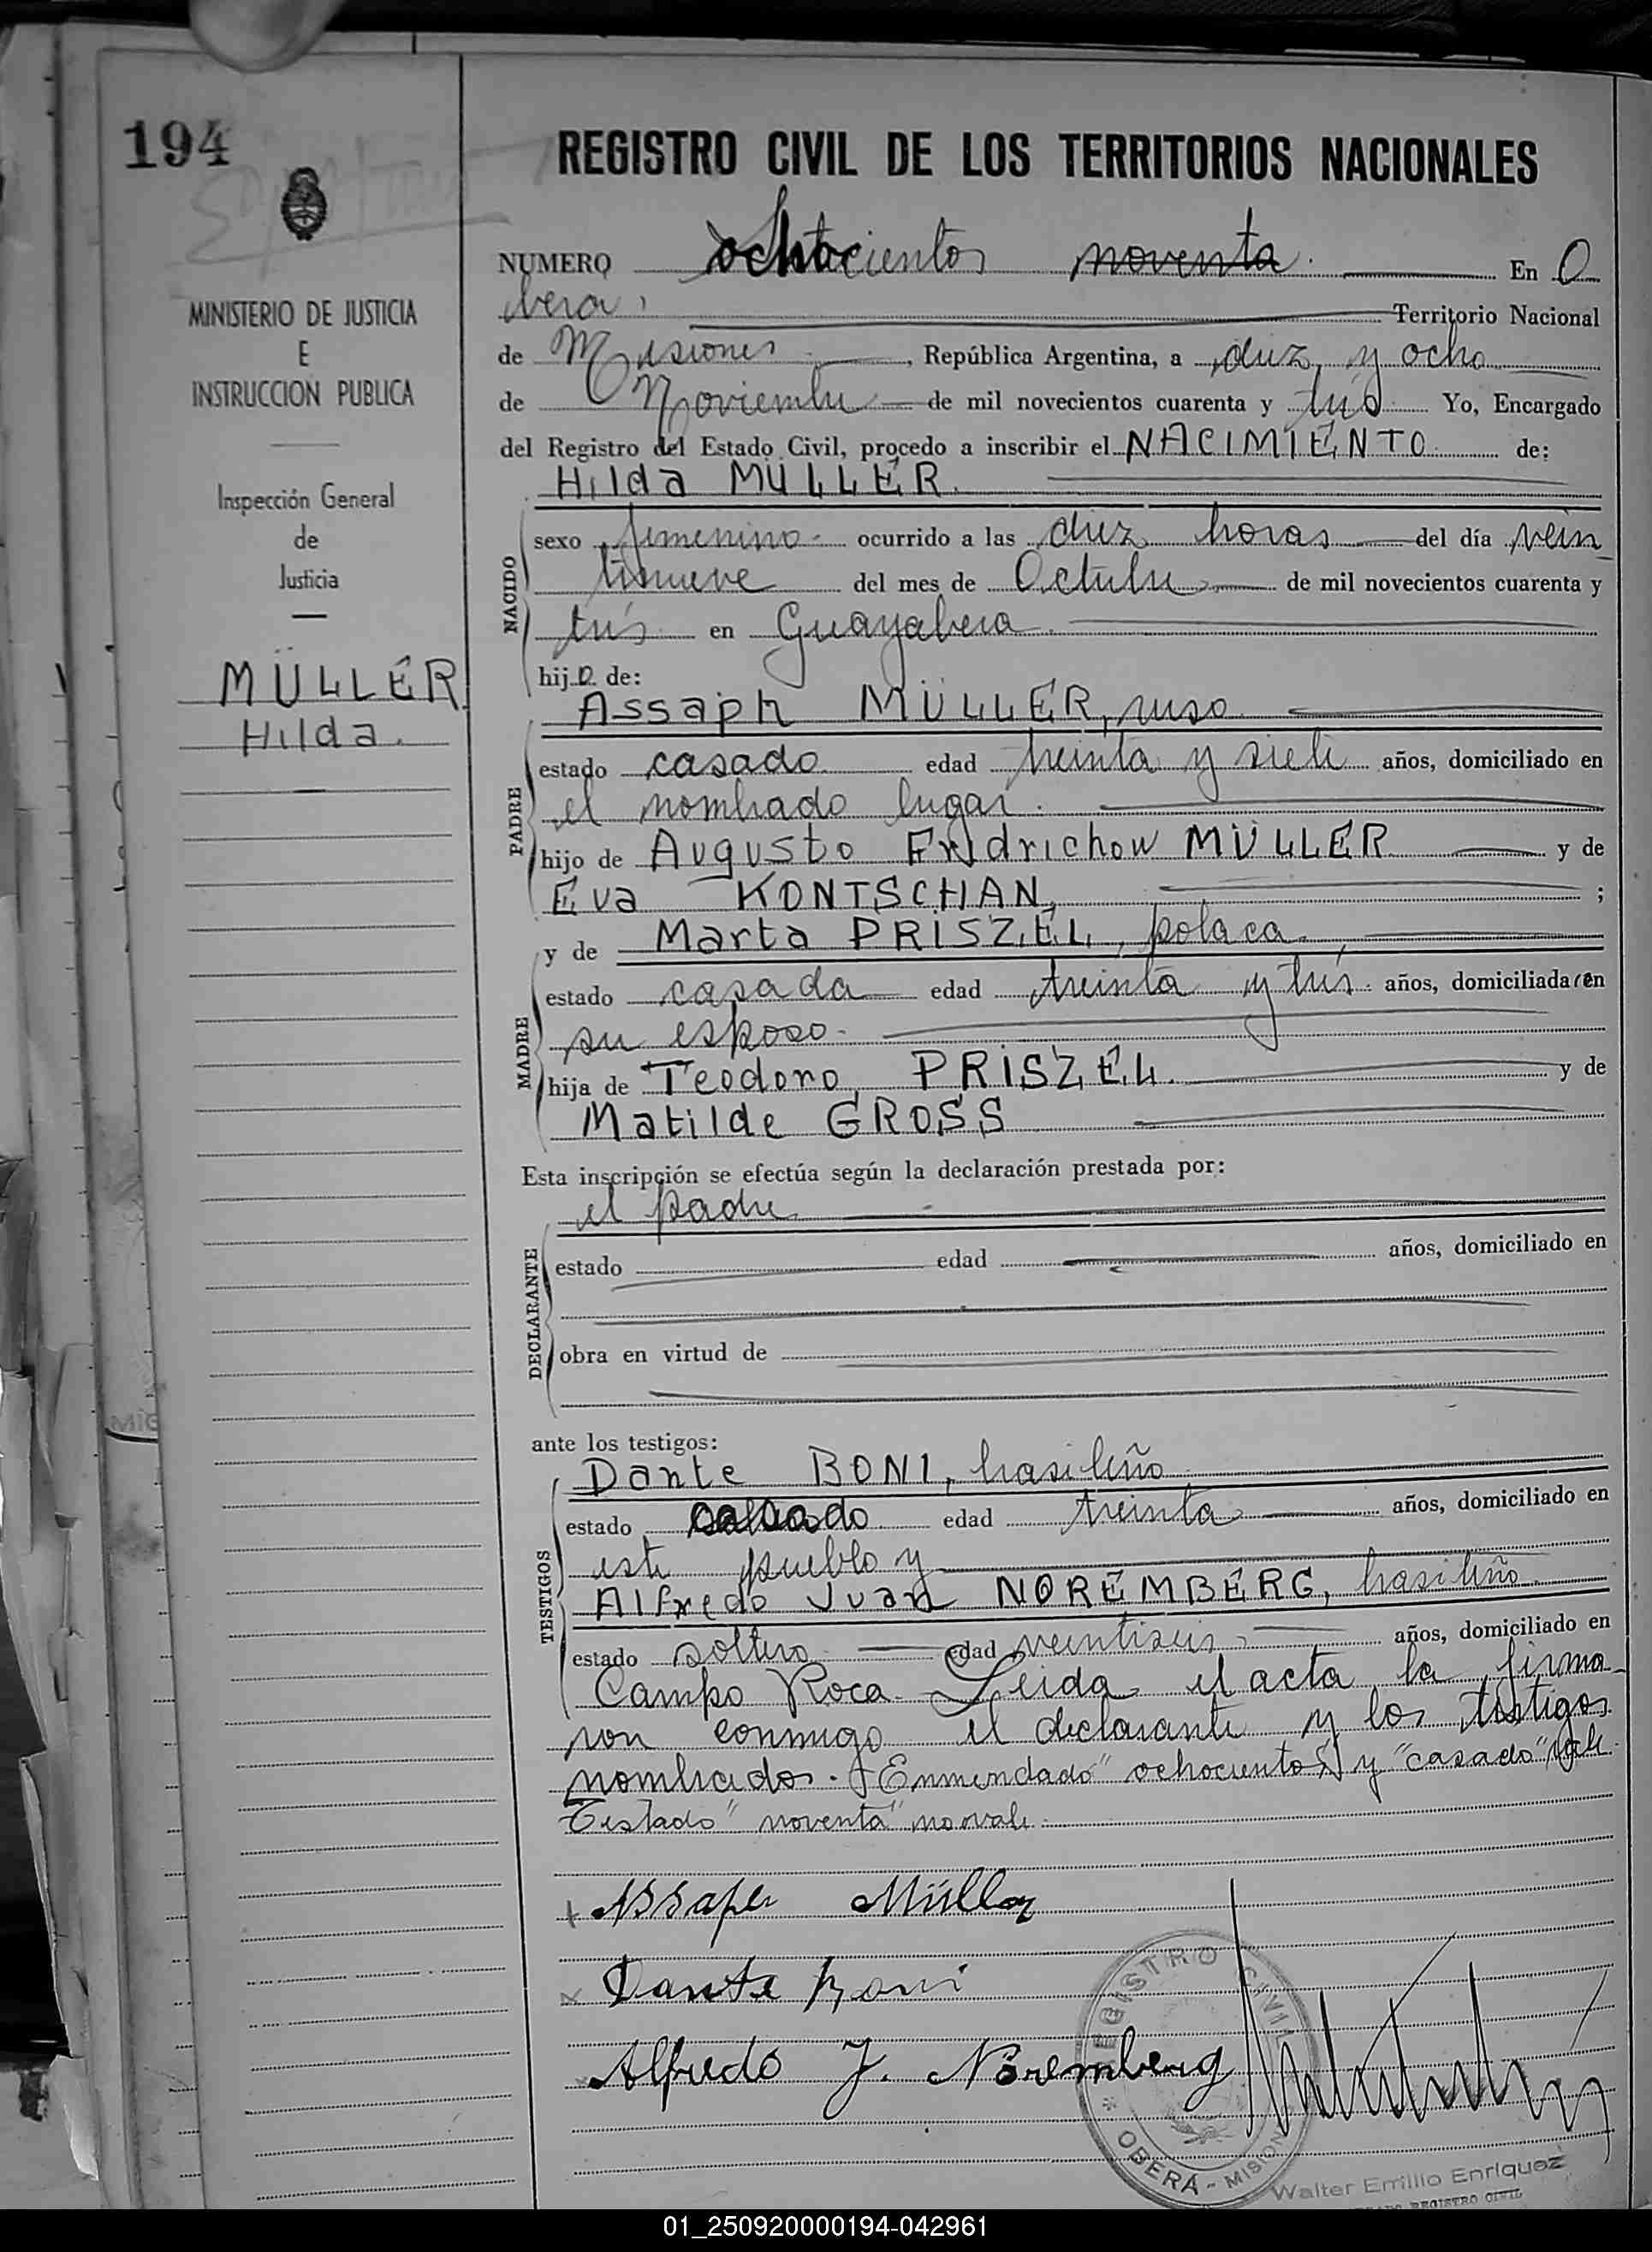 194
MINISTERIO DE JUSTICIA
E
INSTRUCCION PUBLICA
Inspección General
de
Justicia
MÜLLER
Hilda.
REGISTRO CIVIL DE LOS TERRITORIOS NACIONALES
NUMERO ochocientos noventa. En O
bera, Territorio Nacional
de Misiones, República Argentina, a diez y ocho
de Noviembre de mil novecientos cuarenta y trés Yo, Encargado
del Registro del Estado Civil, procedo a inscribir el NACIMIENTO de:
Hilda MÜLLER.
NACIDO
sexo femenino ocurrido a las diez horas del día vein
tinueve del mes de Octubre de mil novecientos cuarenta y
trés en Guayabera
hija de:
PADRE
Assaph MÜLLER, ruso
estado casado edad treinta y siete años, domiciliado en
el nombrado lugar.
hijo de Augusto Fridrichow MÜLLER y de
Eva KONTSCHAN, ;
MADRE
y de Marta PRISZEL, polaca,
estado casada edad treinta y trés años, domiciliada en
su esposo
hija de Teodoro PRISZEL y de
Matilde GROSS
Esta inscripción se efectúa según la declaración prestada por:
DECLARANTE
el padre
estado edad años, domiciliado en
obra en virtud de
ante los testigos:
TESTIGOS
Dante BONI, brasileño
estado casado edad treinta años, domiciliado en
este pueblo y
Alfredo Juan NOREMBERG, brasileño
estado soltero edad veintiseis años, domiciliado en
Campo Roca. Leida el acta la firma
ron conmigo el declarante y los testigos
nombrados. Enmendado "ochocientos" y "casado" vale.
Testado "noventa" no vale
Assaph Müller
Dante Boni
Alfredo J. Noremberg
REGISTRO CIVIL
OBERÁ - MISIONES
Walter Emilio Enriquez
REGISTRO CIVIL
01_250920000194-042961